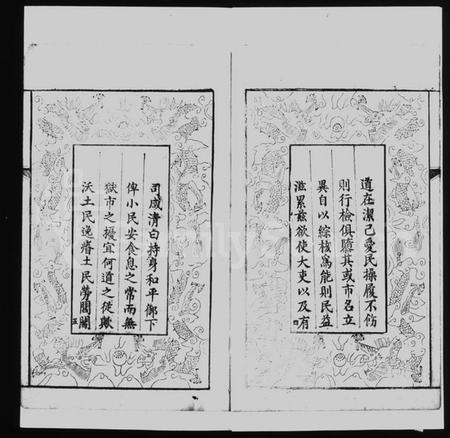 道在潔己愛民操履不飭
則行檢俱隳其或市名立
異自以綜核為能則民益
滋累茲欲使大吏以及有
司咸清白持身和平御下
俾小民安食息之常而無
獄市之擾宜何道之從歟
沃土民逸瘠土民勞閭閻